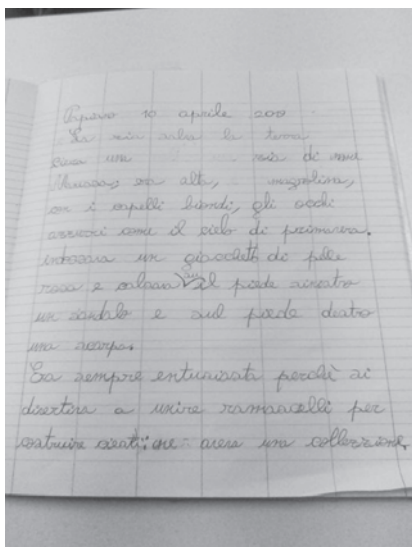 10 aprile 2019
La mia
era una mia di nome
era alta,
con i capelli biondi, gli occhi
azzurri come il cielo di primavera.
indossava un giacchetto di pelle
rosa e calzava sul piede sinistro
un sandalo e sul piede destro
una scarpa.
Era sempre entusiasta perchè si
divertiva a unire ramoscelli per
costruire aveva una collezione